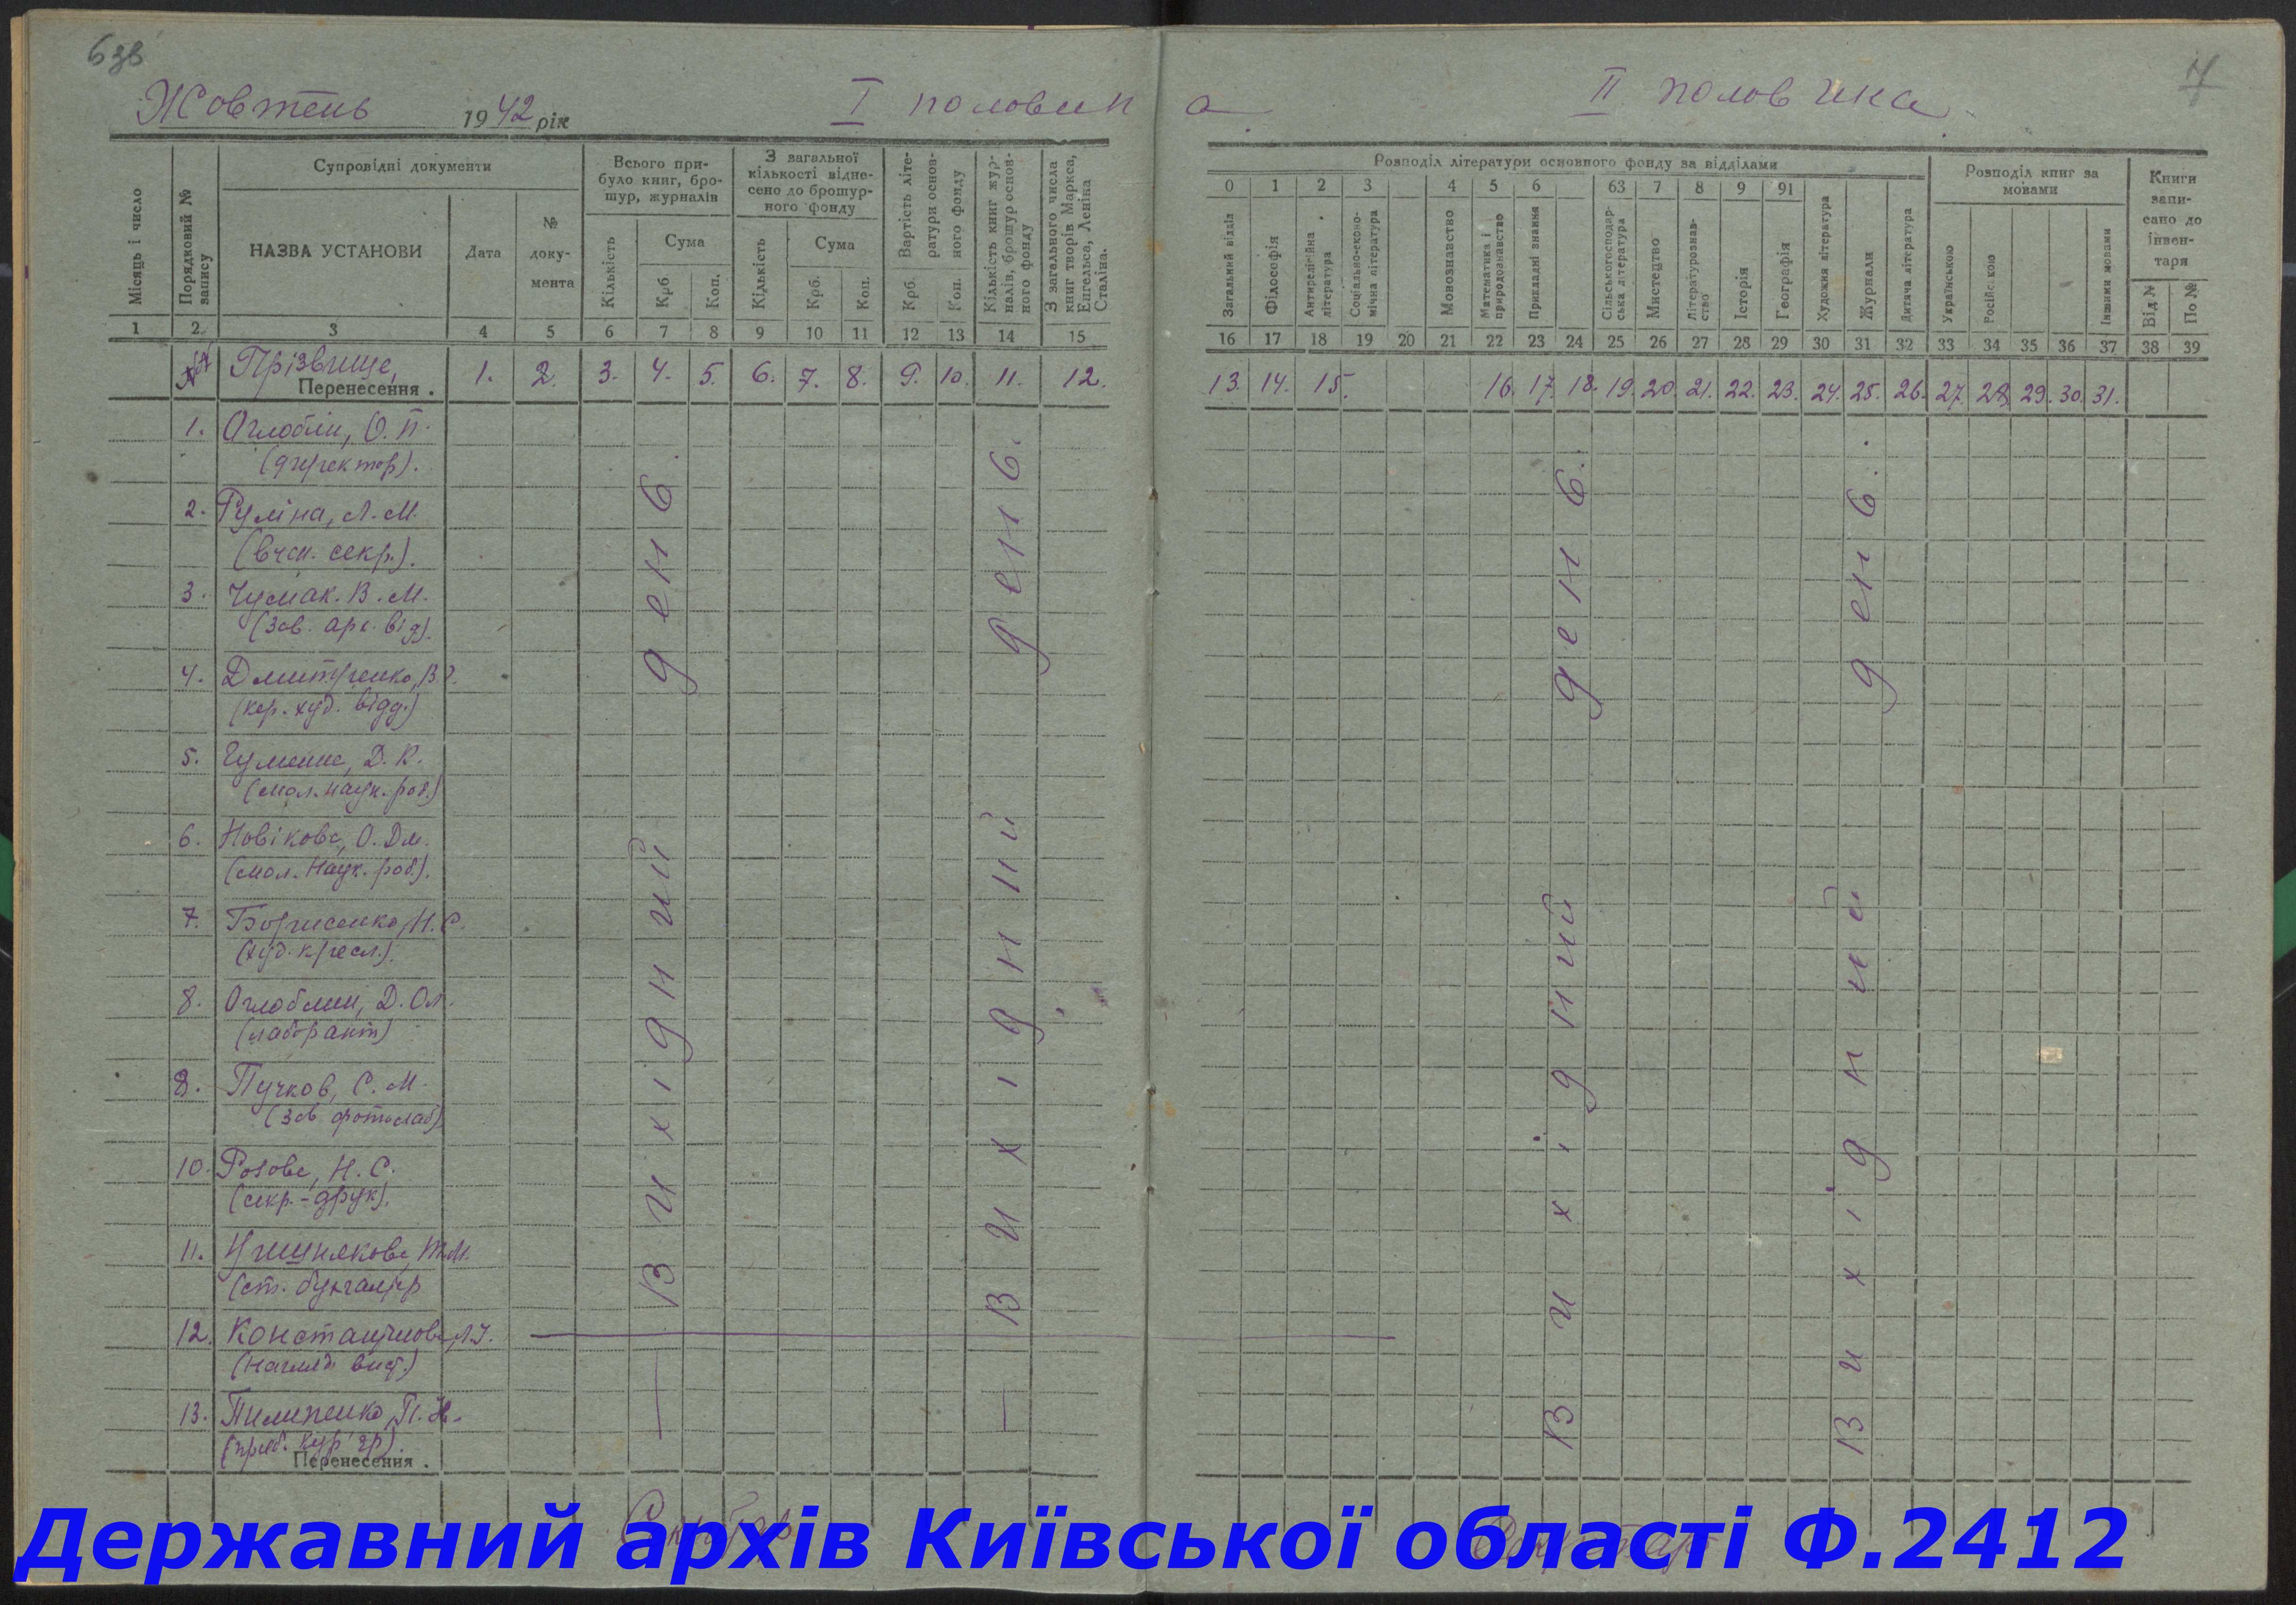 6зв
7
Жовтень 1942 рік
I половина
II половина
Місяць і число
Порядковий № запису
Супровідні документи
НАЗВА УСТАНОВИ
Дата
№ доку-
мента
Всього при-
було книг, бро-
шур, журналів
Кількість
Сума
Крб
Коп.
З загальної
кількості відне-
сено до брошур-
ного фонду
Кількість
Сума
Крб.
Коп.
Вартість літе-
ратури основ-
ного фонду
Крб.
Коп.
Кількість книг жур-
налів, брошур основ-
ного фонду
З загального числа
книг творів Маркса,
Енгельса, Леніна
Сталіна.
Розподіл літератури основного фонду за відділами
0 1 2 3 4 5 6 63 7 8 9 91
Загальний відділ
Філософія
Антирелігійна
література
Соціально-еконо-
мічна література
Мовознавство
Математика і
природознавство
Прикладні знання
Сільськогосподар-
ська література
Мистецтво
Літературознав-
ство
Історія
Географія
Художня література
Журнали
Дитяча література
Розподіл книг за
мовами
Українською
Російською
Іншими мовами
Книги
запи-
сано до
інвен-
таря
Від №
По №
1 2 3 4 5 6 7 8 9 10 11 12 13 14 15
16 17 18 19 20 21 22 23 24 25 26 27 28 29 30 31 32 33 34 35 36 37 38 39
Прізвище,
Перенесення .
1. 2. 3. 4. 5. 6. 7. 8. 9. 10. 11. 12.
13. 14. 15. 16. 17. 18. 19. 20. 21. 22. 23. 24. 25. 26. 27. 28. 29. 30. 31.
1. Оглоблін, О. П.
(директор).
2. Руліна, Л. М.
(вчен. секр.).
3. Чумак. В. М.
(Зав. арх. від).
4. Дмитренко, В.
(кер. худ. відд.)
5. Гуменна, Д. К.
(мол. наук. роб.)
6. Новікова, О. Дм.
(мол. Наук. роб.).
7. Борисенко, Н. С.
(худ. кресл.).
8. Оглоблин, Д. Ол.
(лаборант)
9. Пучков, С. М.
(Зав фотолаб)
10. Розова, Н. С.
(секр.-друк).
11.
(ст. бухгалтер
12. Константинова
(нагляд. вист.)
13. Пилипенко, П.
(приб. кур'єр).
Перенесення .
Вихідний день.
Вихідний день.
Вихідний день.
Вихідний день.
Секретар
Секретар
Державний архів Київської області Ф.2412